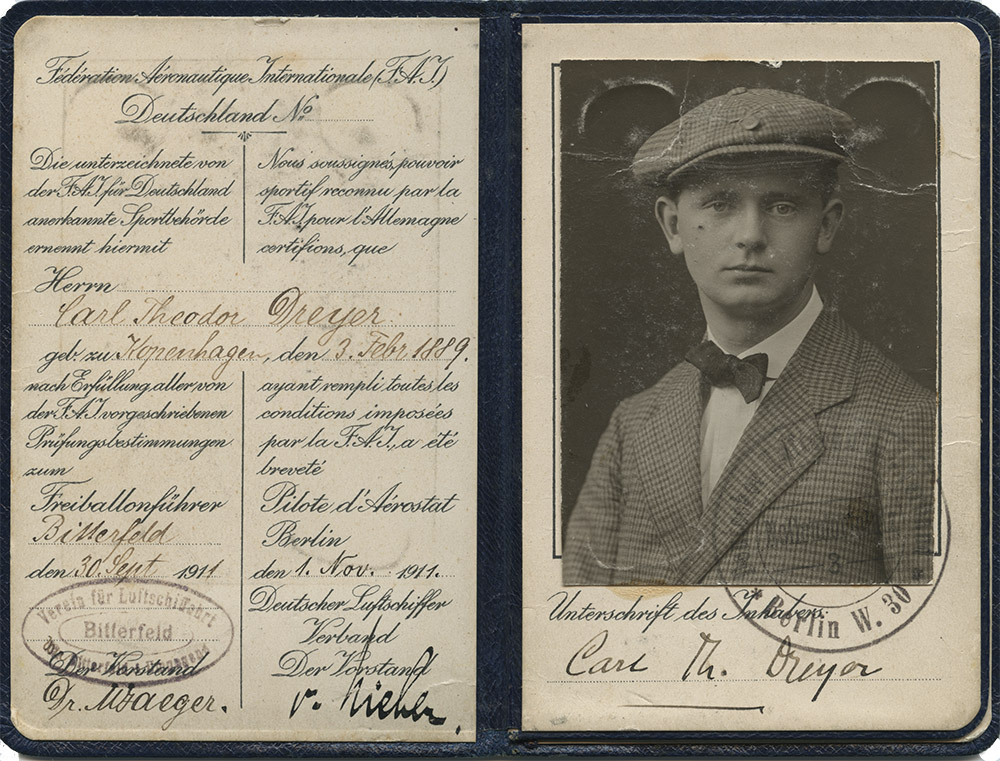 Fédération Aéronautique Internationale (F.A.I.)
Deutschland No
Die unterzeichnete von
der F.A.I. für Deutschland
anerkannte Sportbehörde
ernennt hiermit
Nous soussignés, pouvoir
sportif reconnu par la
F.A.I. pour l'Allemagne
certifions, que
Herrn
Carl Theodor Dreyer
geb. zu Kopenhagen, den 3. Febr 1889.
nach Erfüllung aller von
der F.A.I. vorgeschriebenen
Prüfungsbestimmungen
zum
Freiballonführer
Bitterfeld
den 30. Sept. 1911
ayant rempli toutes les
conditions imposées
par la F.A.I., a été
breveté
Pilote d'Aérostat
Berlin
den 1. Nov. 1911.
Deutscher Luftschiffer
Verband
Der Vorstand
Verein für Luftschiffahrt
Bitterfeld
Der Vorstand
v. Nieber
Unterschrift des Inhabers:
Berlin W. 30
Carl Th. Dreyer